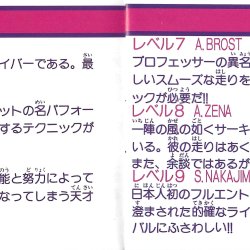 イバーである。最
ットの名パフォー
するテクニックが
能と努力によって
なってしまう天才
レベル7 A.BROST
プロフェッサーの異名
しいスムーズな走りを
ックが必要だ!!
レベル8 A.ZENA
一陣の風の如くサーキ
いる。彼の走りはあく
また、余談ではあるが
レベル9 S.NAKAJIM
日本人初のフルエント
澄まされた的確なライ
バルにふさわしい!!